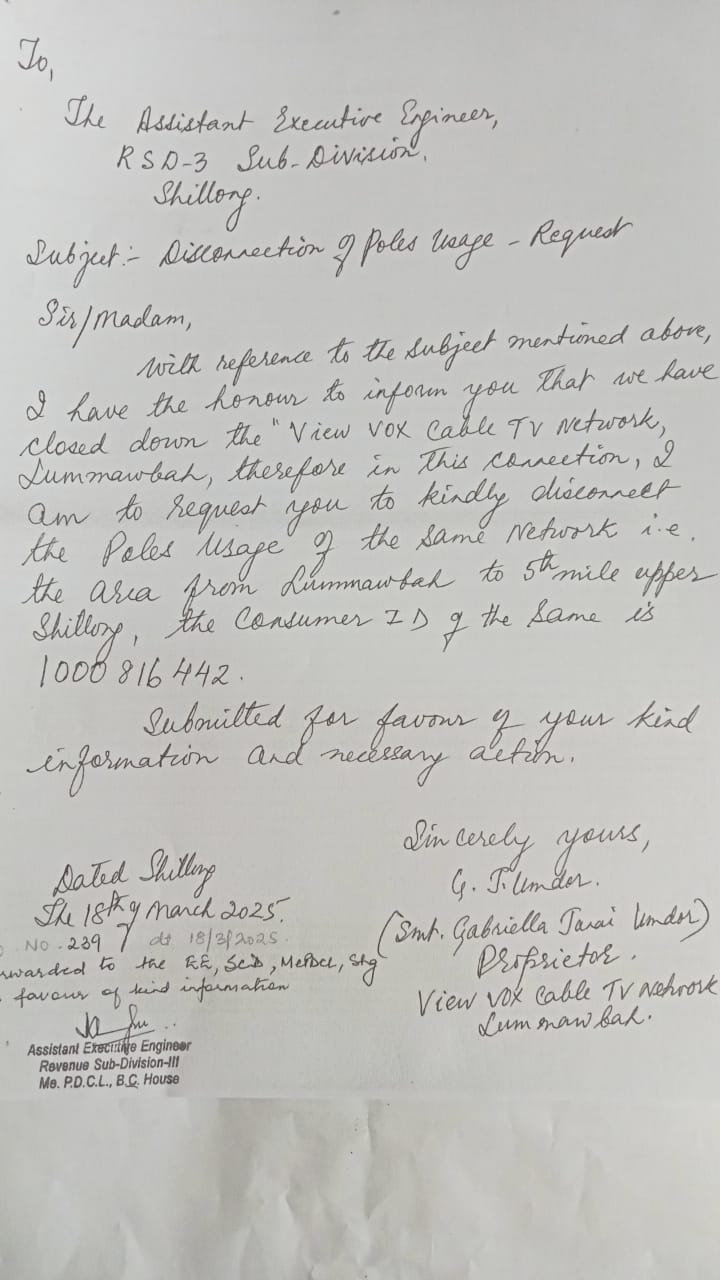 To,
The Assistant Executive Engineer,
RSD-3 Sub-Division,
Shillong.
Subject:- Disconnection of Poles Usage - Request
Sir/Madam,
With reference to the subject mentioned above,
I have the honour to inform you that we have
closed down the "View VOX Cable TV Network,
Lummawbah, therefore in this connection, I
am to request you to kindly disconnect
the Poles Usage of the same Network i.e.
the area from Lummawbah to 5th mile upper
Shillong, the Consumer ID of the same is
1000 816 442.
Submitted for favour of your kind
information and necessary action.
Sincerely yours,
G. T. Umdor.
(Smt. Gabriella Tarai Umdor)
Proprietor.
View VOX Cable TV Network
Lummawbah.
Dated Shillong
The 18th of March 2025.
No. 239 dt 18/3/2025.
rwarded to the EE, SCD, MePDCL, Shg
favour of kind information
Assistant Executive Engineer
Revenue Sub-Division-III
Me. P.D.C.L., B.C. House